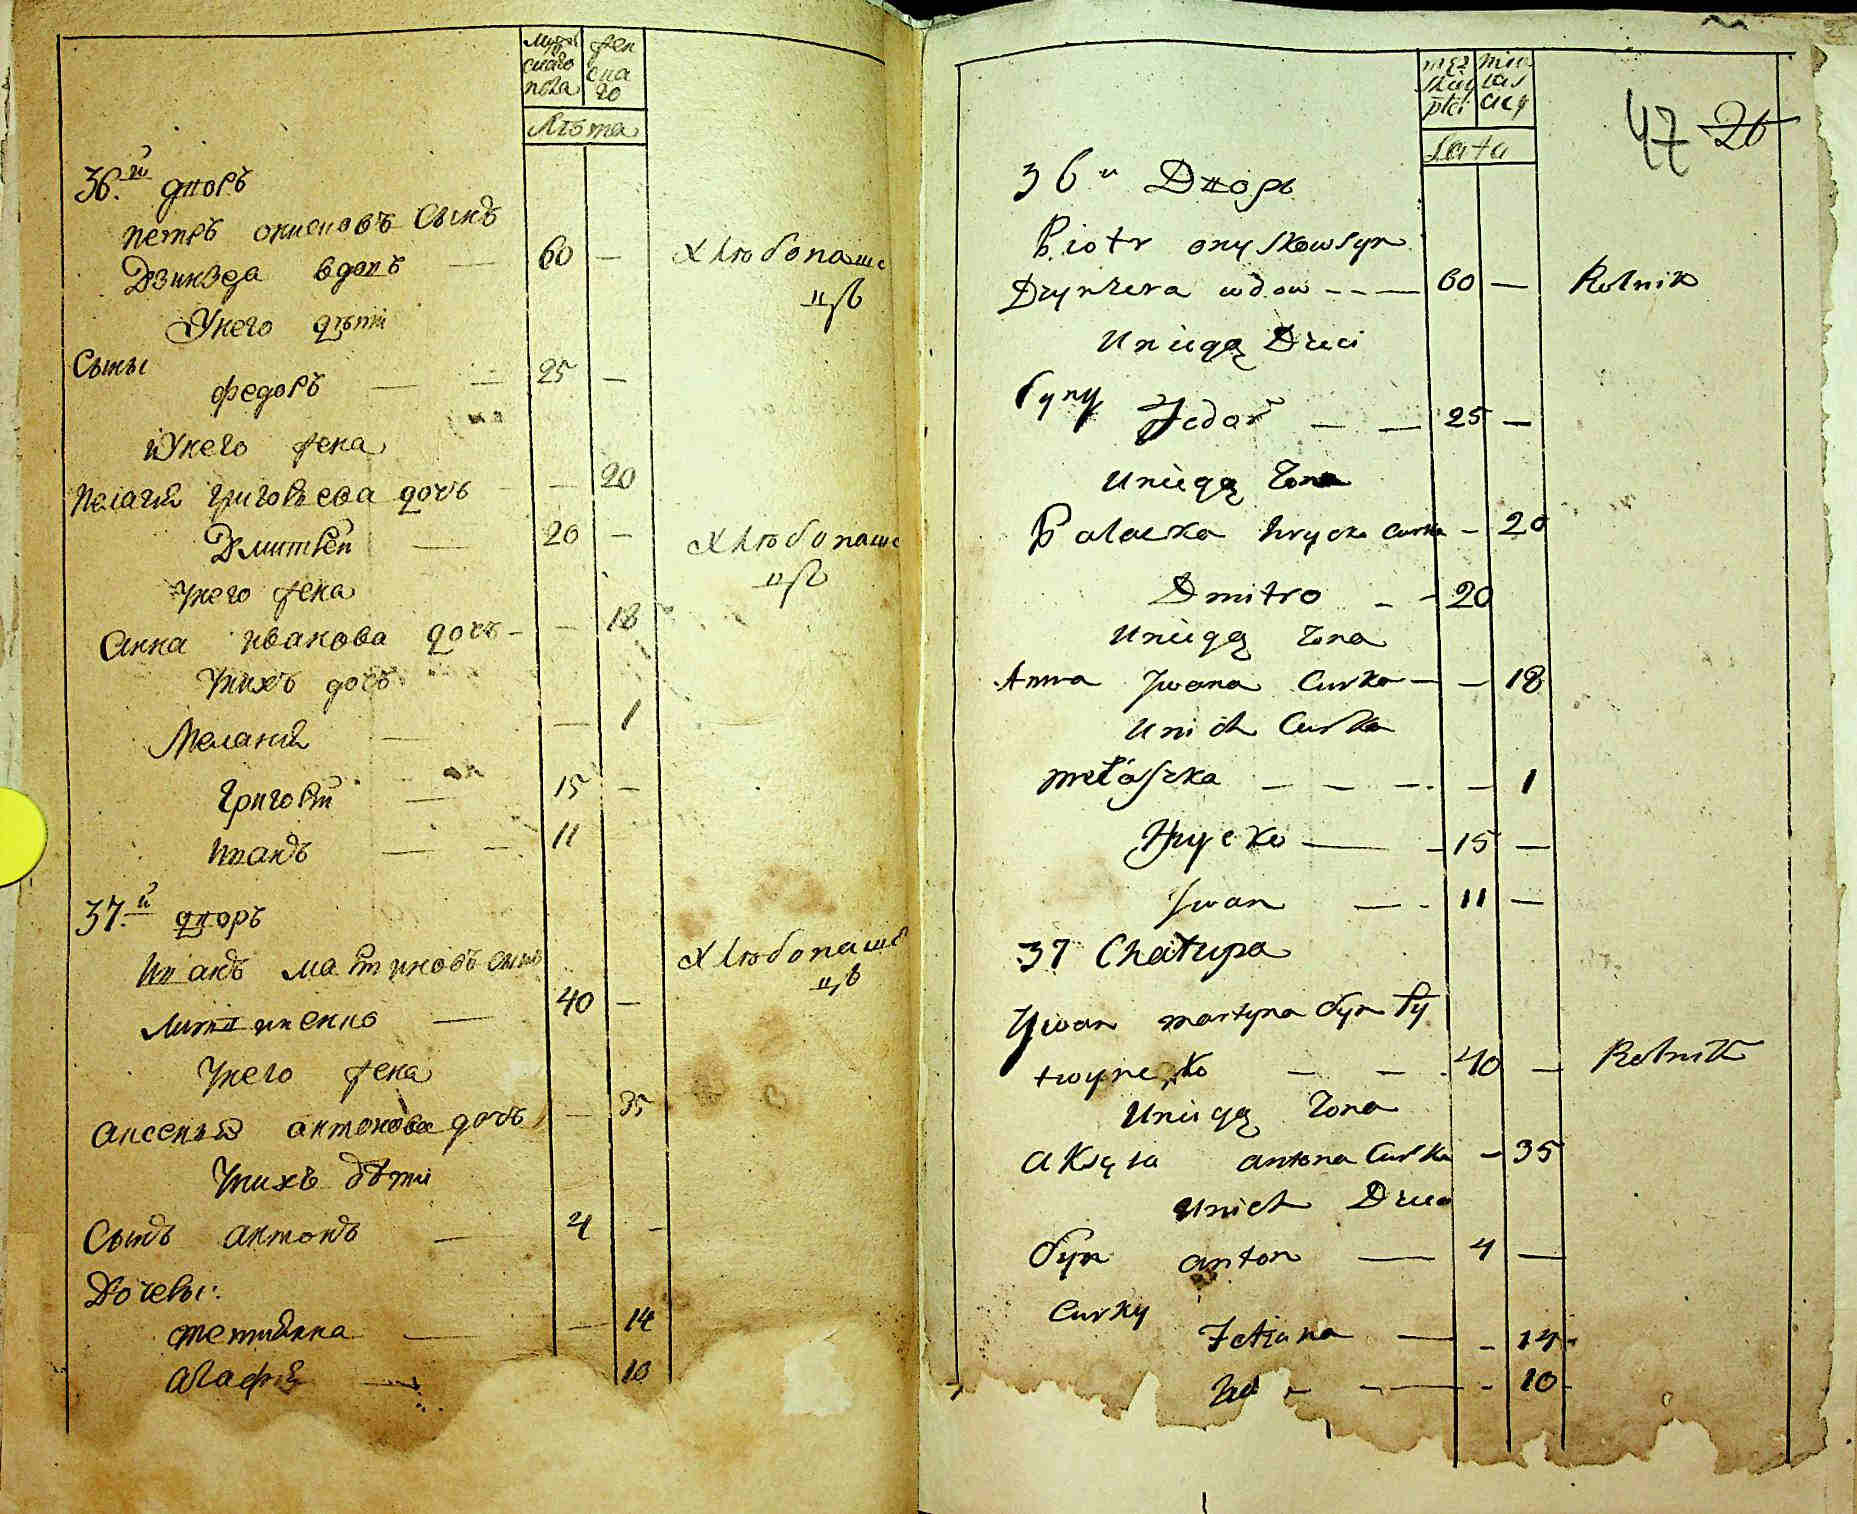 мужескаго пола
женскаго
Лѣта
36.й дворъ
петръ онисковъ Сынъ
Дзинзера вдовъ — 60 — Хлѣбопаше
цъ
Унего дѣти
Сыны
федоръ — — 25 —
Унего жена
Пелагия григорьева дочь — 20
Дмитрей — 20 — Хлѣбопаше
цъ
Унего жена
Анна иванова дочь — — 18
Унихъ дочь
Мелания — — 1
Григорий — 15 —
Иванъ — — 11
37.й дворъ
Иванъ мартиновъ сынъ Хлѣбопаше
цъ
Литвиненко — 40 —
Унего жена
Аксенья антонова дочь — 35
Унихъ дѣти
Сынъ антонъ — 4 —
Дочеры:
тетиянна — — 14
агафия — 10
męzkiey płci
Lata
47 26
36й Дворъ
Piotr onyskow syn
Dzynzera wdow - - — 60 — Rolnik
Uniegą Dzeci
Syny
Fedor — — 25 —
Uniegą żona
Palaszka hrycka Curka — 20
Dmitro - - 20
Uniegą żona
Anna Jwana Curka — — 18
Unich Curka
mełaszka — — — - — 1
Hrycko — - 15 —
Jwan — - 11 —
37 Chałupa
Jwan martyna Syn Ły
twynenko — — - 40 — Rolnik
Uniegą żona
aKsęia antona Curka - 35
Unich Dzeci
Syn anton — 4 —
Curky
Tetiana — - 14
— - 10